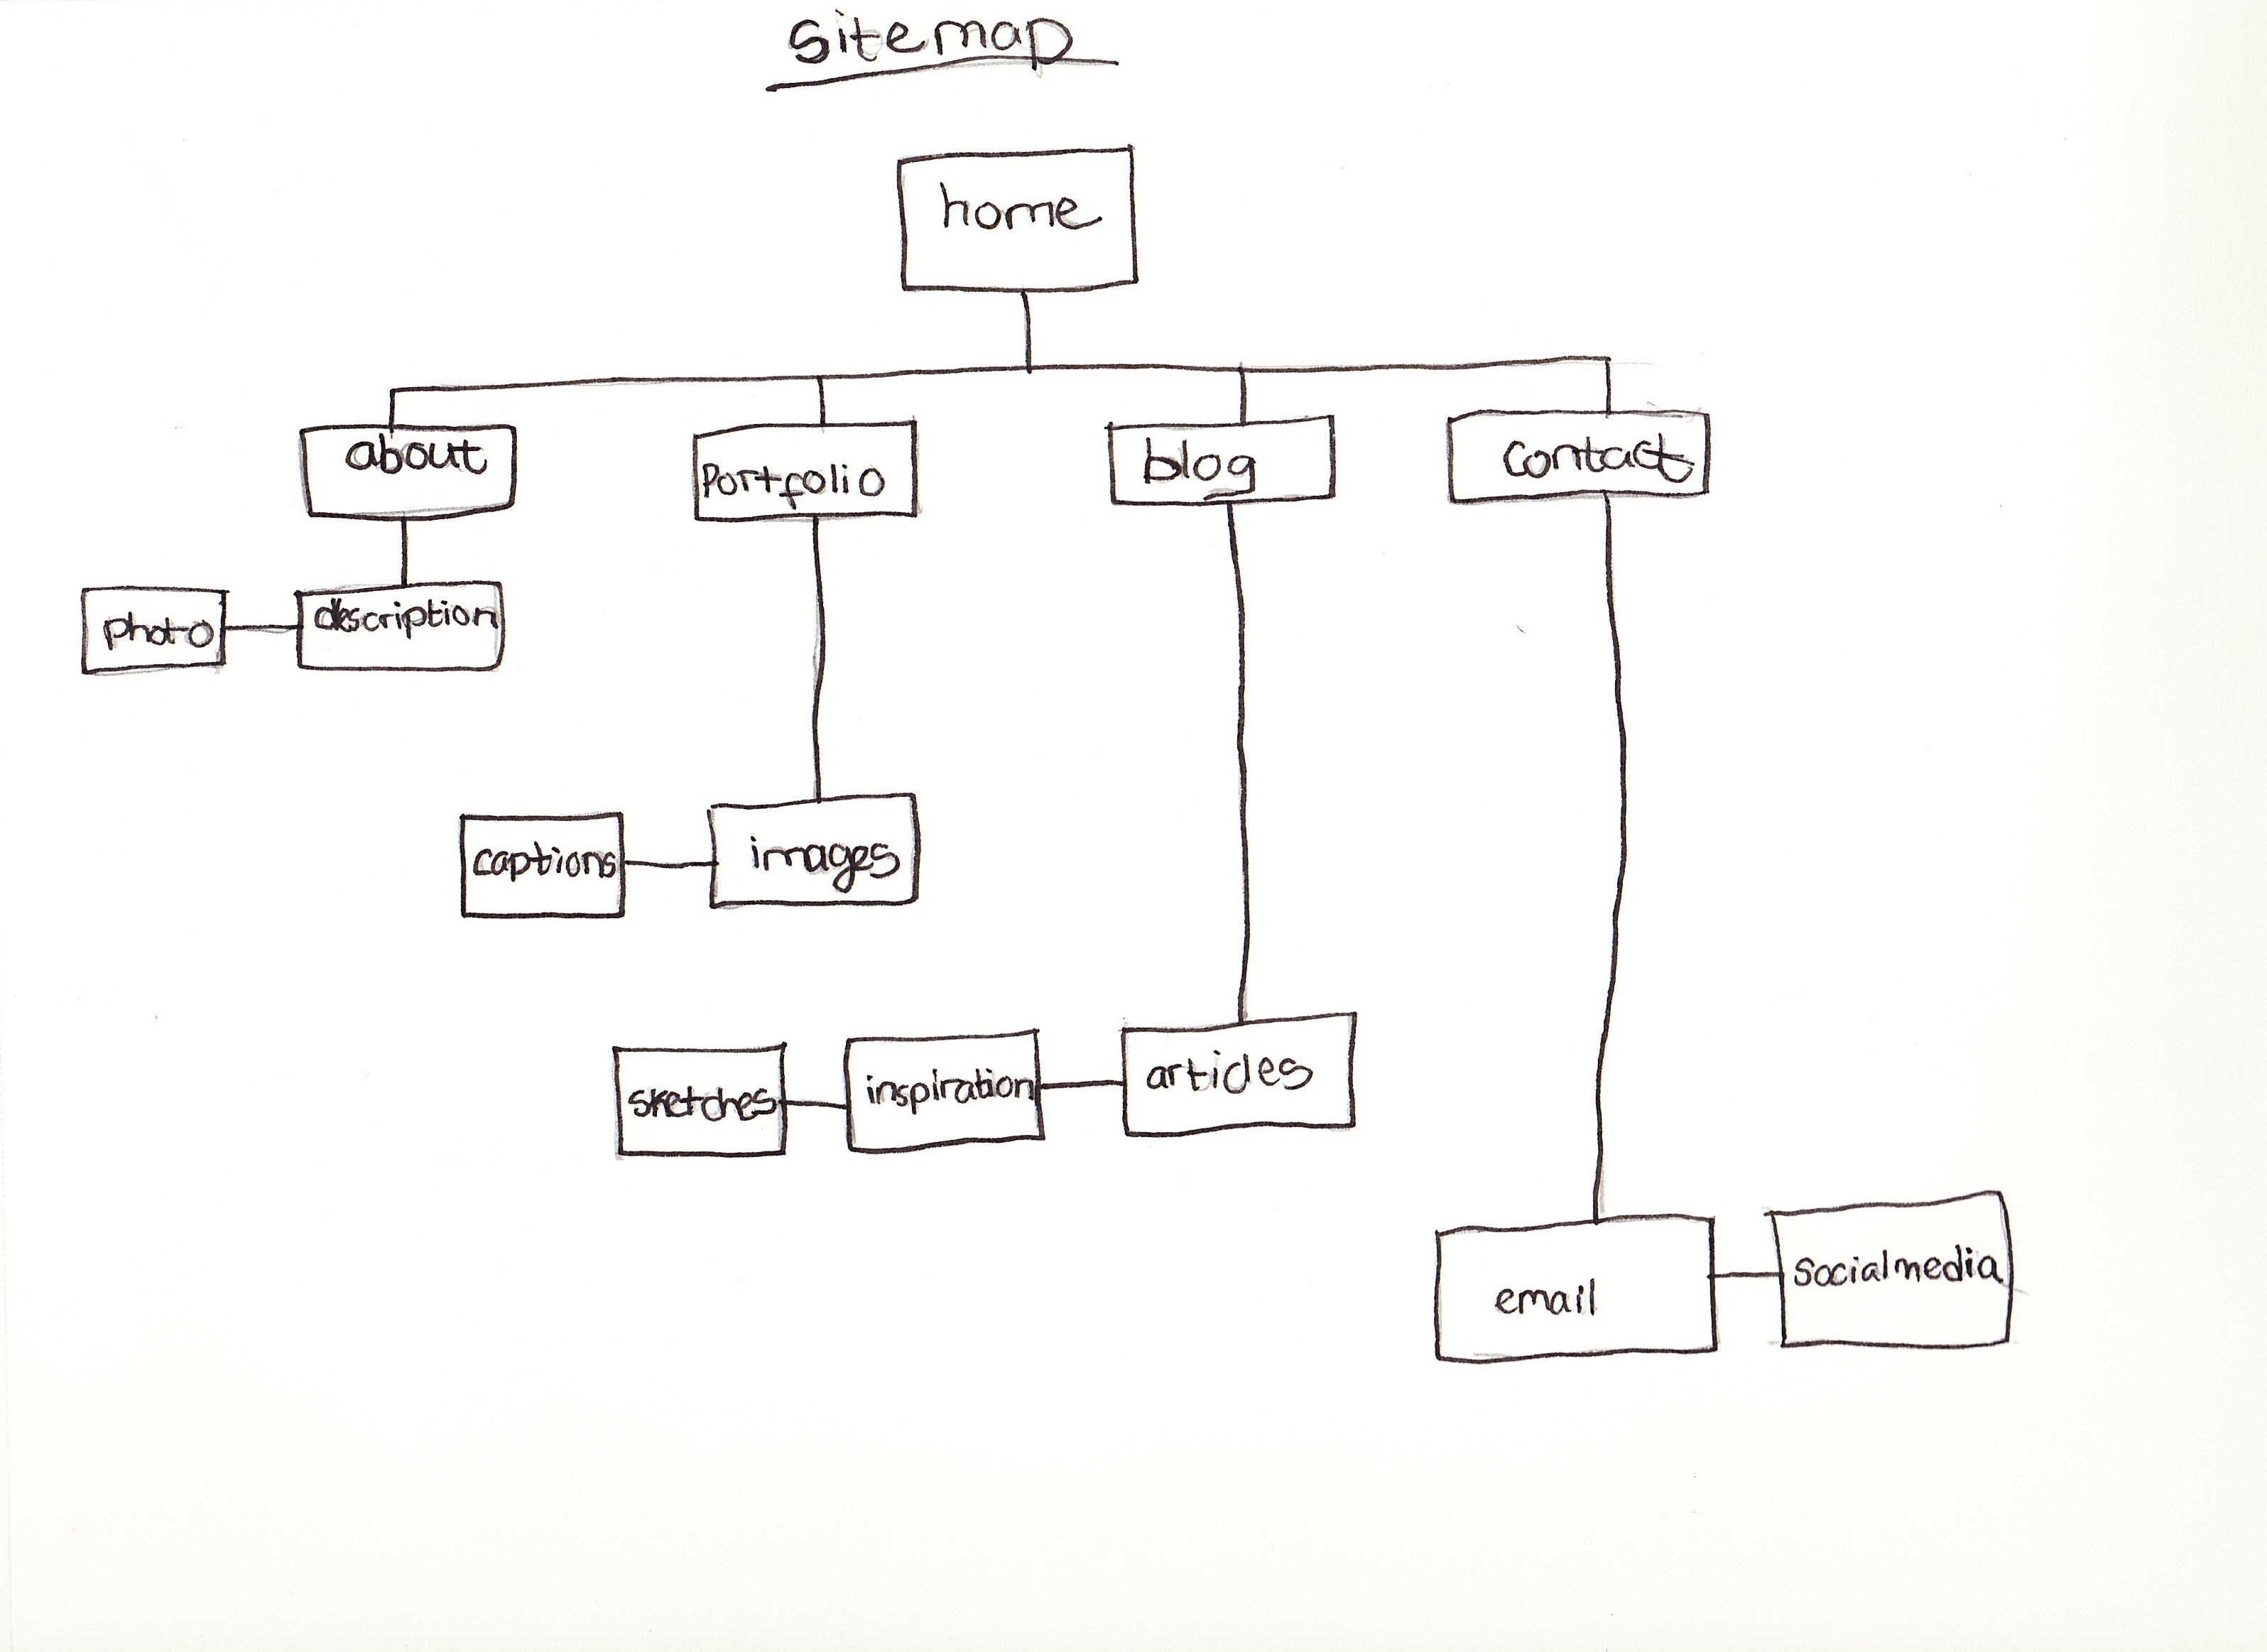 sitemap
home
about
Portfolio
blog
contact
photo
description
captions
images
sketches
inspiration
articles
email
socialmedia